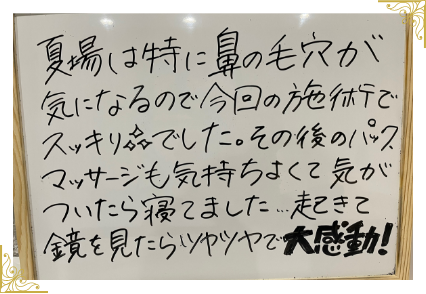 夏場は特に鼻の毛穴が
気になるので今回の施術で
スッキリ✨でした。その後のパック
マッサージも気持ちよくて気が
ついたら寝てました…起きて
鏡を見たらツヤツヤで大感動!